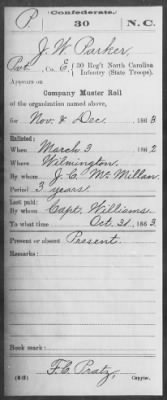 Confederate.
P 30 N.C.
J. W. Parker
Pvt, Co. E, 30 Reg't North Carolina
Infantry (State Troops).
Appears on
Company Muster Roll
of the organization named above,
for Nov. & Dec., 1863
Enlisted:
When March 3 1862
Where Wilmington.
By whom J. C. McMillan
Period 3 years.
Last paid:
By whom Capt. Williams.
To what time Oct. 31, 1863
Present or absent Present.
Remarks:
Book mark:
F. C. Pratz,
Copyist.